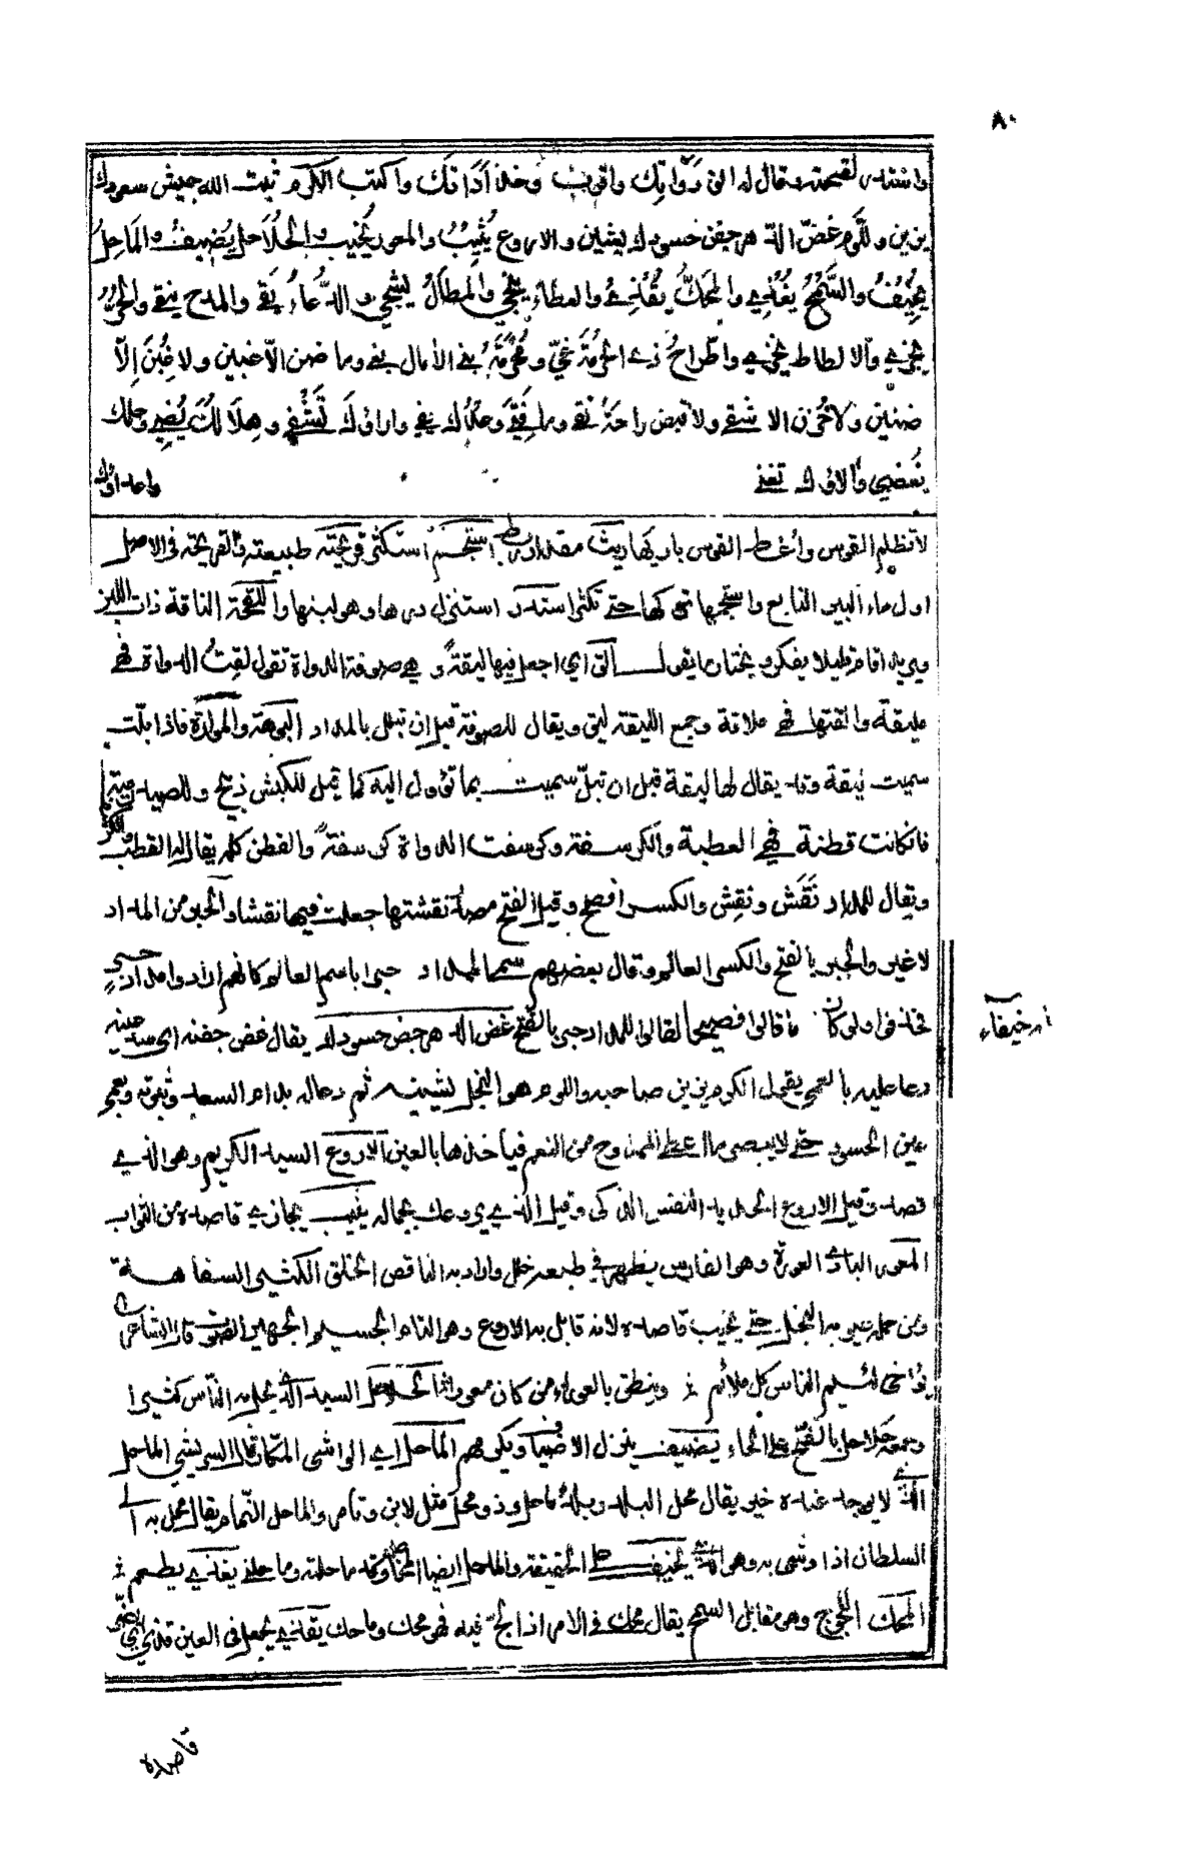 ٨٠
واستدر لقحته وقال له الق دواتك واقرب وخذ أداتك واكتب الكرم ثبت الله جيش سعودك
يزين واللوم غض الدهر جفن حسودك يشين والاروع يُثيبُ والمعور يُخيب والحُلاحل يُضيفُ والمَاحِلُ
يُخِيفُ والسَّمحُ يُغْذِي والمحكُ يُقْذِي والعطاء ينجي والمطالُ يشجي والدُّعاءُ يَقي والمدح ينقي والحُرُّ
يجزي والالطاط يخزي واطراحُ ذي الحُرمَةِ غَيّ ومُحرمةُ بني الآمال بغي وما ضن الا غبين ولا غُبِنَ إلّا
ضنين ولا خزن الا شقي ولا قبض راحَهُ تقي وما فتئ وعدُك يفي واراؤكَ تَشْفِي وهلالُكَ يُضِي وحلمك
يُغضي وآلاؤك تغني واعداؤك
لا تظلم القوس وأعط القوس باريها
اول ماء البير النابع واستجمها تركها حتى تكثر استدر استنزل درها وهو لبنها واللقحة الناقة ذات اللبن
ويريد اقام قليلا يفكر ويختار ما يقول الق اي اجعل فيها ليقةً وهي صوفة الدواة تقول لقتُ الدواة فهي
مليقة والقتها فهي ملاقة وجمع الليقة ليق ويقال للصوفة قبل ان تبلل بالمداد البوهة والموارة فاذا بلّت
سميت ليقة وقد يقال لها ليقة قبل ان تبلّ سميت بما تؤول اليه كما قيل للكبش ذبح وللصيد رمية
فان كانت قطنة فهي العطبة والكرسفة وكرسفت الدواة كرسفةً والقطن كله يقال له العطب
ويقال للمداد نَقْش ونِقِش والكسر افصح وقيل الفتح مصدر نقشتها جعلت فيها نقشا والحبر من المداد
لا غير والحبر بالفتح والكسر العالم وقال بعضهم سمي المداد حبرا باسم العالم كانهم ارادوا مداد حبر
فحذف ولو كان ما قالوا صحيحا لقالوا للمداد حبر بالفتح غض الدهر جفن حسودك يقال غض جفنه اي سد عينه
دعا عليه بالعمى يقول الكرم يزين صاحبه واللوم هو البخل يشينه ثم دعا له بدوام السعد وثبوته وبعمى
عين الحسود حتى لا يبصر ما اعطى الممدوح من النعم فياخذها بالعين الاروع السيد الكريم وهو الذي
قصد وقيل الاروع الحديد النفس الذكي وقيل الذي يروعك بجماله يثيب يجازي قاصده من الثواب
المعور البادي العورة وهو الفارس يظهر في طبعه خلل واراد به الناقص الخلق الكثير السفاهة
ومن جملة عيوبه البخل حتى يخيب قاصده لانه قابل به الاروع وهو التام الجسيم الجهير الصوت قال الشاعر
وينطق بالعوراء من كان معورا الحلاحل السيد الذي يحل به الناس كثيرا
وجمعه حلاحل بالفتح على الحاء يضيف ينزل الاضياف ويكرمهم الماحل اي الواشي المكار قال الشريشي الماحل
الذي لا يوجد عنده خير يقال محل البلد وبلد ماحل وذو محل مثل لابن وتامر والماحل النمام يقال محل به الى
السلطان اذا وشى به وهو الذي يخيف على الحقيقة والماحل ايضا المحال وقد ماحلته وما حلني يغذي يطعم
المحك اللجوج وهو مقابل السمح يقال محك في الامر اذا لج فيه فهو محك وماحك يقذي يجعل في العين قذى
قاصده